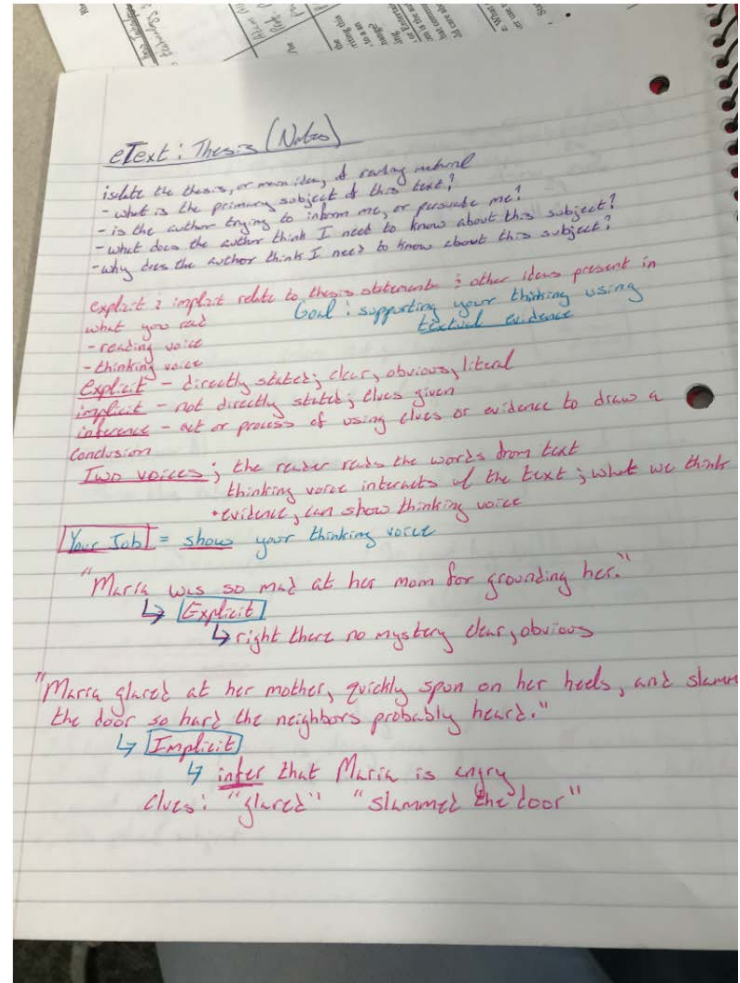 eText: Thesis (Notes)
isolate the thesis, or main idea, of reading material
- what is the primary subject of this text?
- is the author trying to inform me, or persuade me?
- what does the author think I need to know about this subject?
- why does the author think I need to know about this subject?
explicit & implicit relate to thesis statements & other ideas present in
what you read
Goal: supporting your thinking using
textual evidence
- reading voice
- thinking voice
Explicit - directly stated; clear, obvious, literal
implicit - not directly stated; clues given
inference - act or process of using clues or evidence to draw a
conclusion
Two voices; the reader reads the words from text
thinking voice interacts w/ the text; what we think
• evidence, can show thinking voice
Your Job = show your thinking voice
"Maria was so mad at her mom for grounding her."
↳ Explicit
↳ right there no mystery clear, obvious
"Maria glared at her mother, quickly spun on her heels, and slamm
the door so hard the neighbors probably heard."
↳ Implicit
↳ infer that Maria is angry
Clues: "glared" "slammed the door"